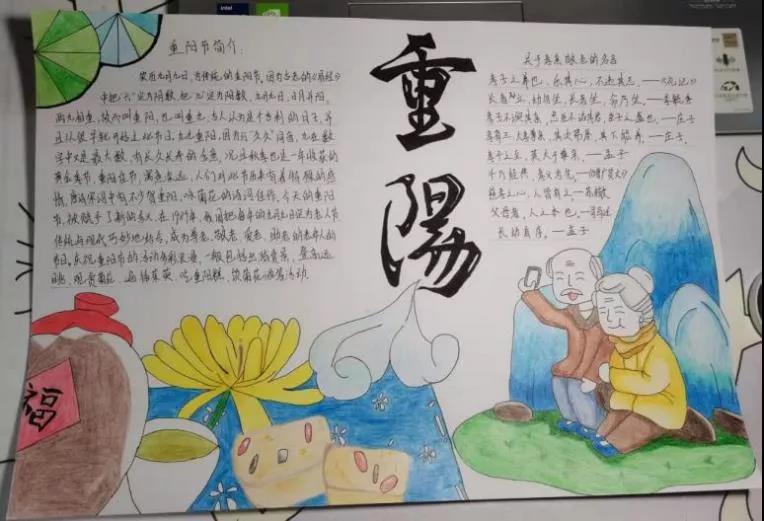 重阳节简介:
农历九月九日,为传统的重阳节。因为古老的《易经》
中把“六”定为阴数,把“九”定为阳数,九月九日,日月并阳,
两九相重,故而叫重阳,也叫重九,古人认为是个吉利的日子,并
且从很早就开始过此节日。九九重阳,因为与“久久”同音,九在数
字中又是最大数,有长久长寿的含意,况且秋季也是一年收获的
黄金季节,重阳佳节,寓意深远,人们对此节历来有着特殊的感
情,唐诗宋词中有不少贺重阳,咏菊花的诗词佳作。今天的重阳
节,被赋予了新的含义,在1989年,我国把每年的九月九日定为老人节
传统与现代巧妙地结合,成为尊老、敬老、爱老、助老的老年人的
节日。庆祝重阳节的活动多彩浪漫,一般包括出游赏景、登高远
眺、观赏菊花、遍插茱萸、吃重阳糕、饮菊花酒等活动。
重陽
关于孝亲敬老的名言
孝子之养也,乐其心,不违其志。——《礼记》
孝子不谀其亲,忠臣不谄其君,臣子之盛也。——庄子
孝有三:大孝尊亲,其次弗辱,其下能养。
孝子之至,莫大乎尊亲。——孟子
父母者,人之本也。——司马迁
——孟子
福
intel